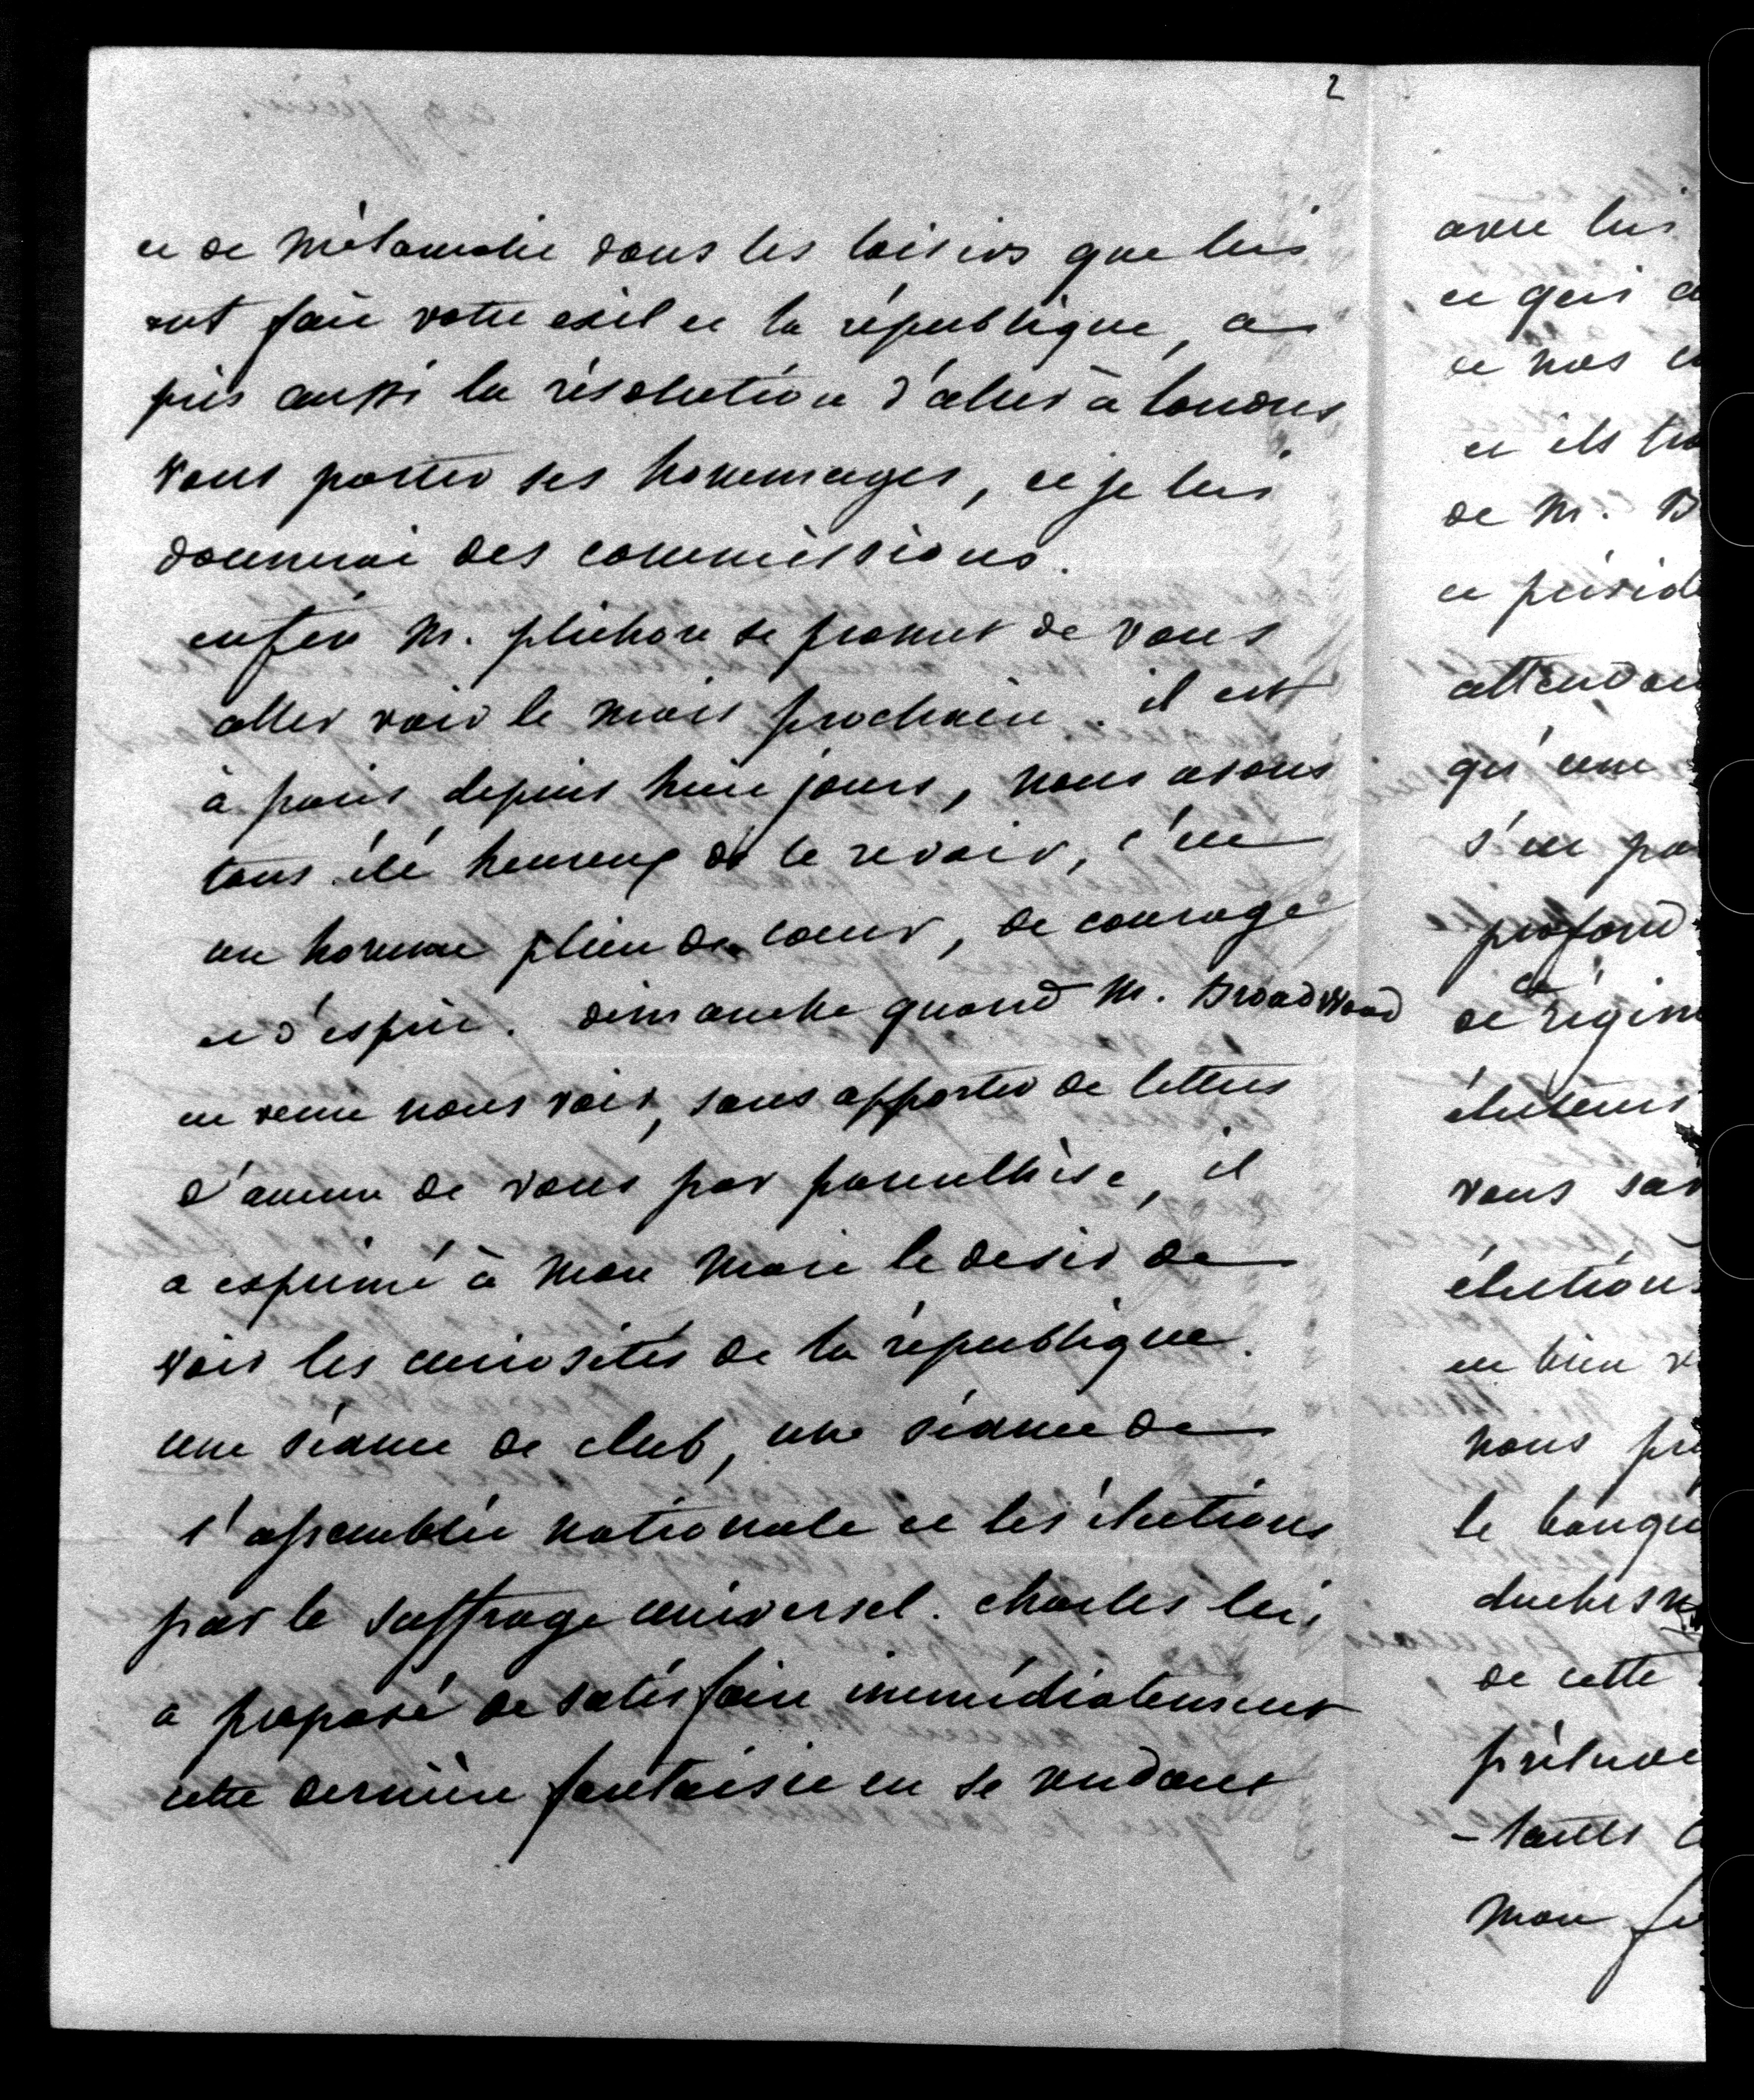 2
et de mélancolie dans les loisirs que lui
ont fait votre exil et la république, a
pris aussi la résolution d'aller à londres
vous porter ses hommages, et je lui
donnerai des commissions.
enfin M. plichon se promet de vous
aller voir le mois prochain. il est
à paris depuis huit jours, nous avons
tous été heureux de le revoir, c'est
un homme plein de coeur, de courage
et d'esprit. dimanche quand M. Broadwood
est venu nous voir, sans apporter de lettres
d'aucun de vous par parenthèse, il
a exprimé à mon mari le desir de
voir les curiosités de la république.
une séance de club, une séance de
l'assemblée nationale et les élections
par le suffrage universel. charles lui
a proposé de satisfaire immédiatement
cette dernière fantaisie en se rendant
avec lui
et qui
et nos
et ils
de M. B
et présid
attendai
qu'une
s'est pa
profond
de régim
électeurs
vous sav
élections
est bien
nous
le banqu
duchesn
de cette
prélude
mon